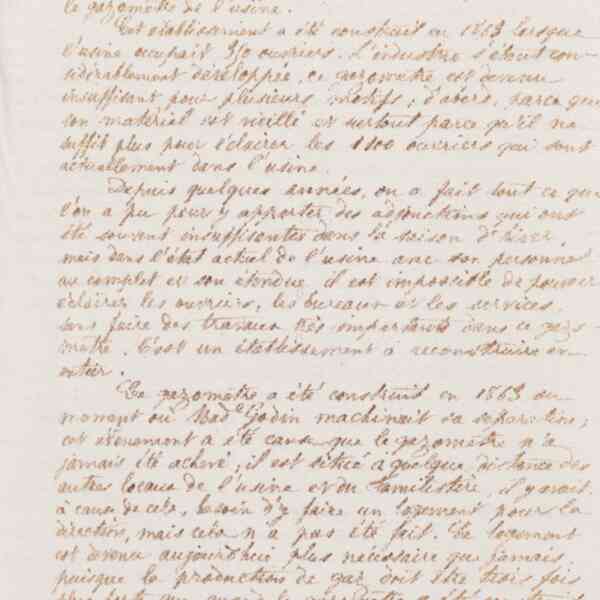 le gazomètre de l'usine.
Cet établissement a été construit en 1863 lorsque
l'usine occupait 350 ouvriers. L'industrie s'étant con-
sidérablement développée, ce gazomètre est devenu
insuffisant pour plusieurs motifs; d'abord, parce que
son matériel est vieilli et surtout parce qu'il ne
suffit plus pour éclairer les 1100 ouvriers qui sont
actuellement dans l'usine.
Depuis quelques années, on a fait tout ce que
l'on a pu pour y apporter des adjonctions qui ont
été souvent insuffisantes dans la saison d'hiver,
mais dans l'état actuel de l'usine avec son personnel
au complet et son étendue, il est impossible de pouvoir
éclairer les ouvriers, les bureaux et les services,
sans faire des travaux très importants dans ce gazo-
mètre. C'est un établissement à reconstruire en
entier.
Le gazomètre a été construit en 1863 au
moment où Mad. Godin machinait sa séparation;
cet évènement a été cause que le gazomètre n'a
jamais été achevé; il est situé à quelque distance des
autres locaux de l'usine et du familistère, il y avait,
à cause de cela, besoin d'y faire un logement pour la
direction, mais cela n'a pas été fait. Ce logement
est devenu aujourd'hui plus nécessaire que jamais
puisque la production de gaz doit être trois fois
plus forte que quand le gazomètre a été construit